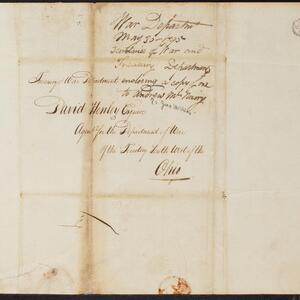 War Departm
May 30 - 1795
Secretaries of War and
Treasury Departments
War Department enclosing a copy of one
to Andrew
David Henley Esquire
Agent for the Department of War
of the South West of the
Ohio